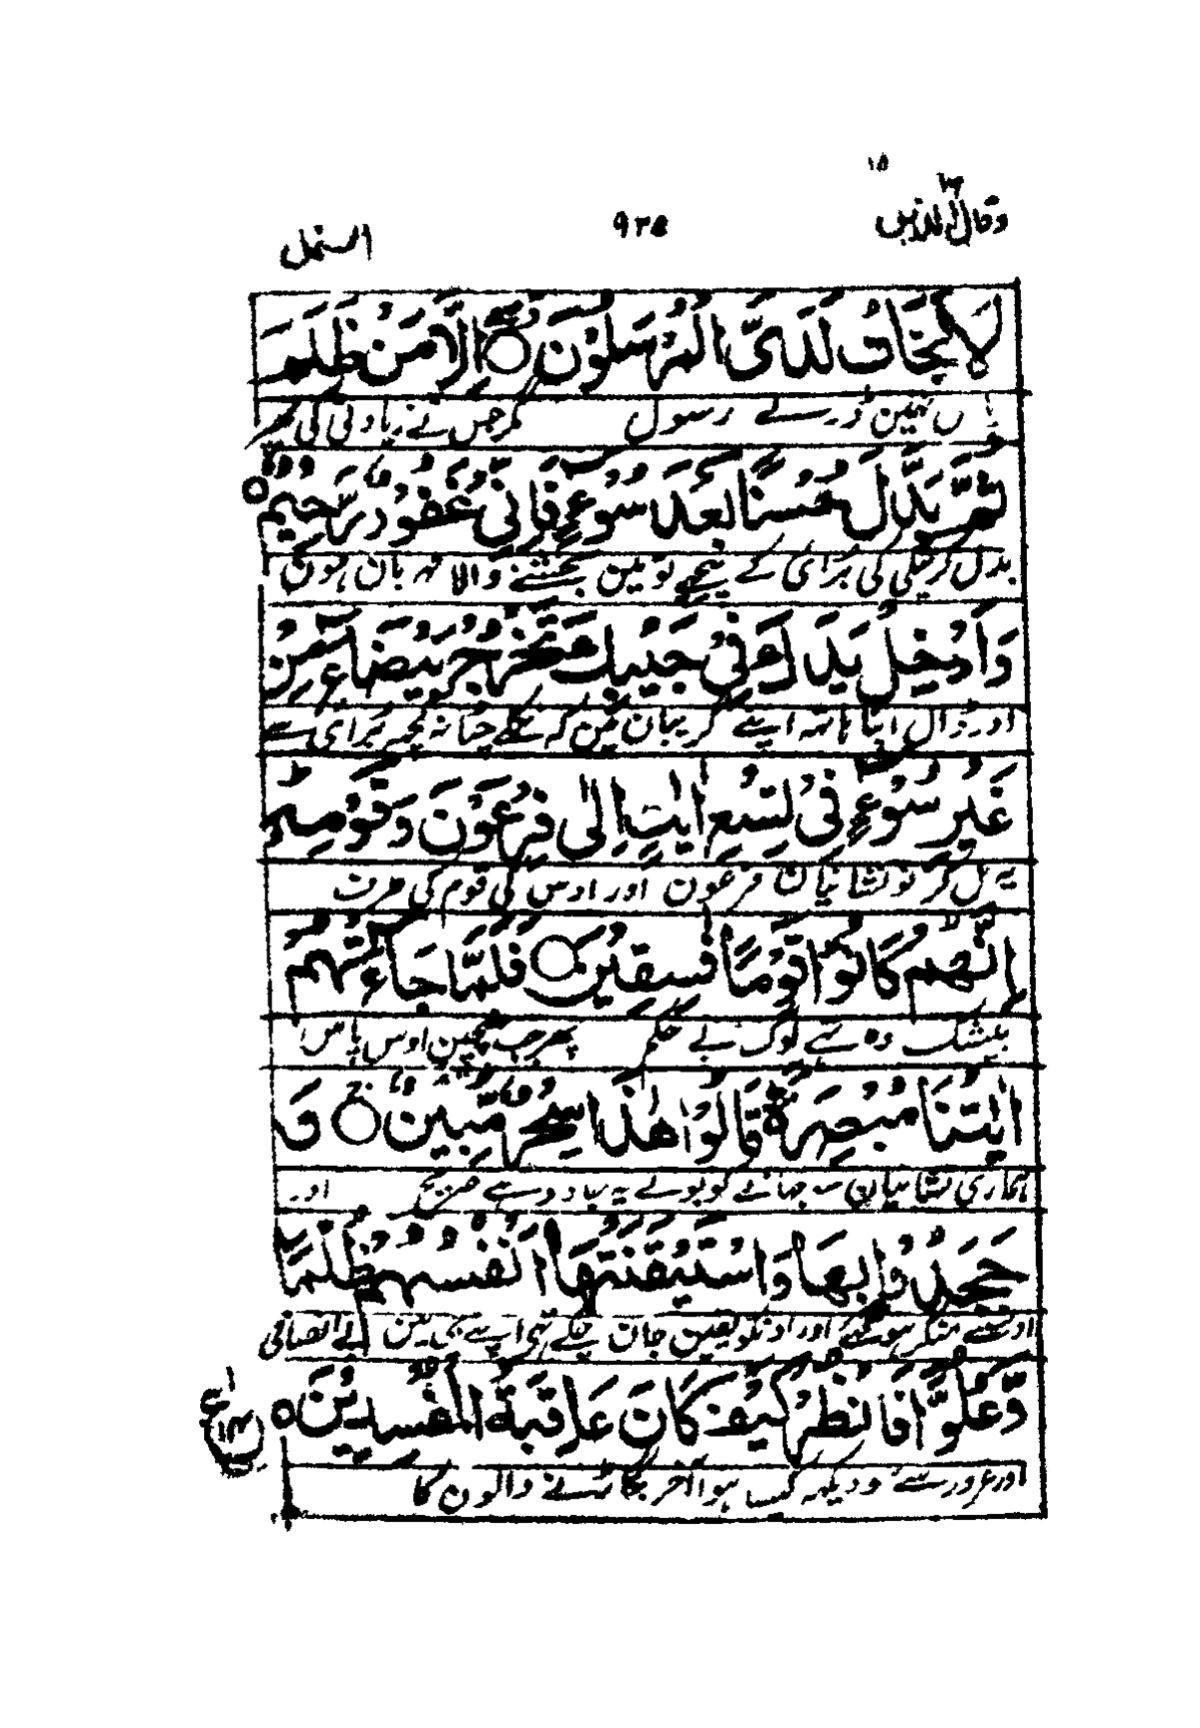 ۱۵
وقال الذین
۹۲۵
النمل
لَا يَخَافُ لَدَيَّ الْمُرْسَلُوْنَ ○ اِلَّا مَنْ ظَلَمَ
نہین ڈرتے رسول مگر جس نے زیادتی کی پھر
ثُمَّ بَدَّلَ حُسْنًا بَعْدَ سُوْٓءٍ فَاِنِّيْ غَفُوْرٌ رَّحِيْمٌ ○
بدل کر نیکی کی بُرائی کے پیچھے تو مین بخشنے والا مہربان ہون
وَاَدْخِلْ يَدَكَ فِيْ جَيْبِكَ تَخْرُجْ بَيْضَآءَ مِنْ
اور ڈال اپنا ہاتھ اپنے گریبان مین کہ نکلے چٹا نہ کچھ بُرائی سے
غَيْرِ سُوْٓءٍ فِيْ تِسْعِ اٰيٰتٍ اِلٰى فِرْعَوْنَ وَقَوْمِهٖ
یہ مل کر نو نشانیان فرعون اور اوس کی قوم کی طرف
اِنَّهُمْ كَانُوْا قَوْمًا فٰسِقِيْنَ ○ فَلَمَّا جَآءَتْهُمْ
بیشک وہ تھے لوگ بے حکم پھر جب پہنچین اوس پاس
اٰيٰتُنَا مُبْصِرَةً قَالُوْا هٰذَا سِحْرٌ مُّبِيْنٌ ○ وَ
ہماری نشانیان سمجھانے کو بولے یہ جادو ہے صریح اور
جَحَدُوْا بِهَا وَاسْتَيْقَنَتْهَا اَنْفُسُهُمْ ظُلْمًا
اونسے منکر ہوگئے اور اونکو یقین جان چکے تھے اپنے جی مین بے انصافی
وَّعُلُوًّا فَانْظُرْ كَيْفَ كَانَ عَاقِبَةُ الْمُفْسِدِيْنَ ○
اور غرور سے و دیکھ کیسا ہوا آخر بگاڑنے والون کا